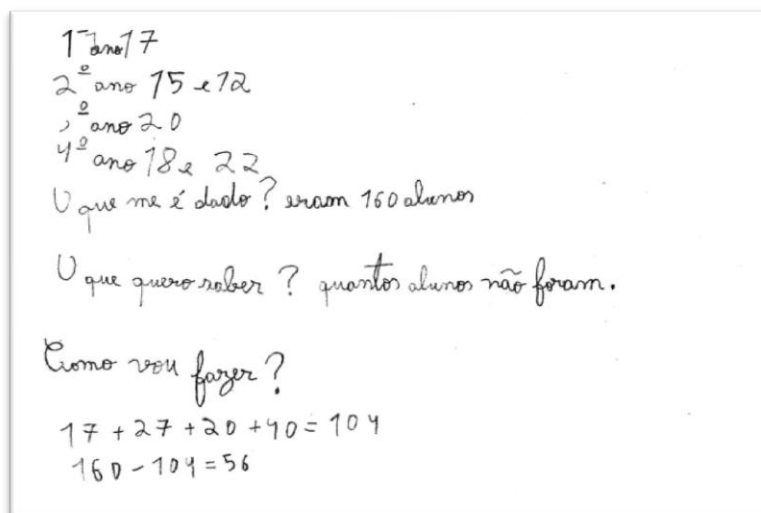 1º ano 17
2º ano 15 e 12
3º ano 20
4º ano 18 e 22
O que me é dado? eram 160 alunos
O que quero saber? quantos alunos não foram.
Como vou fazer?
17 + 27 + 20 + 40 = 104
160 - 104 = 56